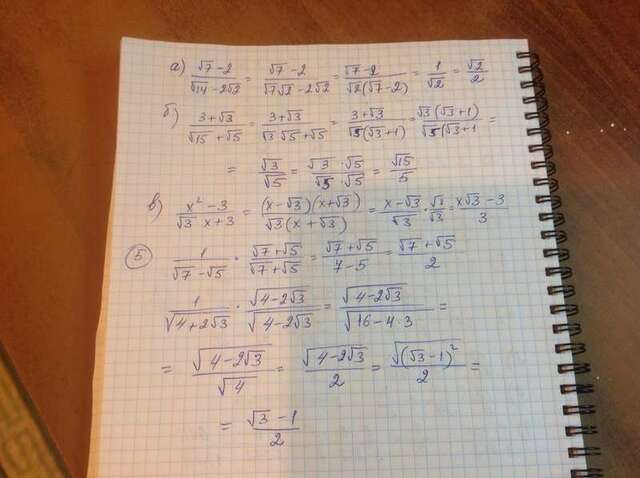 а) (√7 − 2)/(√14 − 2√2) = (√7 − 2)/(√7√2 − 2√2) = (√7 − 2)/(√2(√7 − 2)) = 1/√2 = √2/2
б) (3 + √3)/(√15 + √5) = (3 + √3)/(√3·√5 + √5) = (3 + √3)/(√5(√3 + 1)) = √3(√3 + 1)/(√5(√3 + 1 =
= √3/√5 = √3/√5 · √5/√5 = √15/5
в) (x² − 3)/(√3 x + 3) = (x − √3)(x + √3)/(√3(x + √3)) = (x − √3)/√3 · √3/√3 = (x√3 − 3)/3
5 1/(√7 − √5) · (√7 + √5)/(√7 + √5) = (√7 + √5)/(7 − 5) = (√7 + √5)/2
1/√(4 + 2√3) · √(4 − 2√3)/√(4 − 2√3) = √(4 − 2√3)/√(16 − 4·3) =
= √(4 − 2√3)/√4 = √(4 − 2√3)/2 = √((√3 − 1)²)/2 =
= (√3 − 1)/2